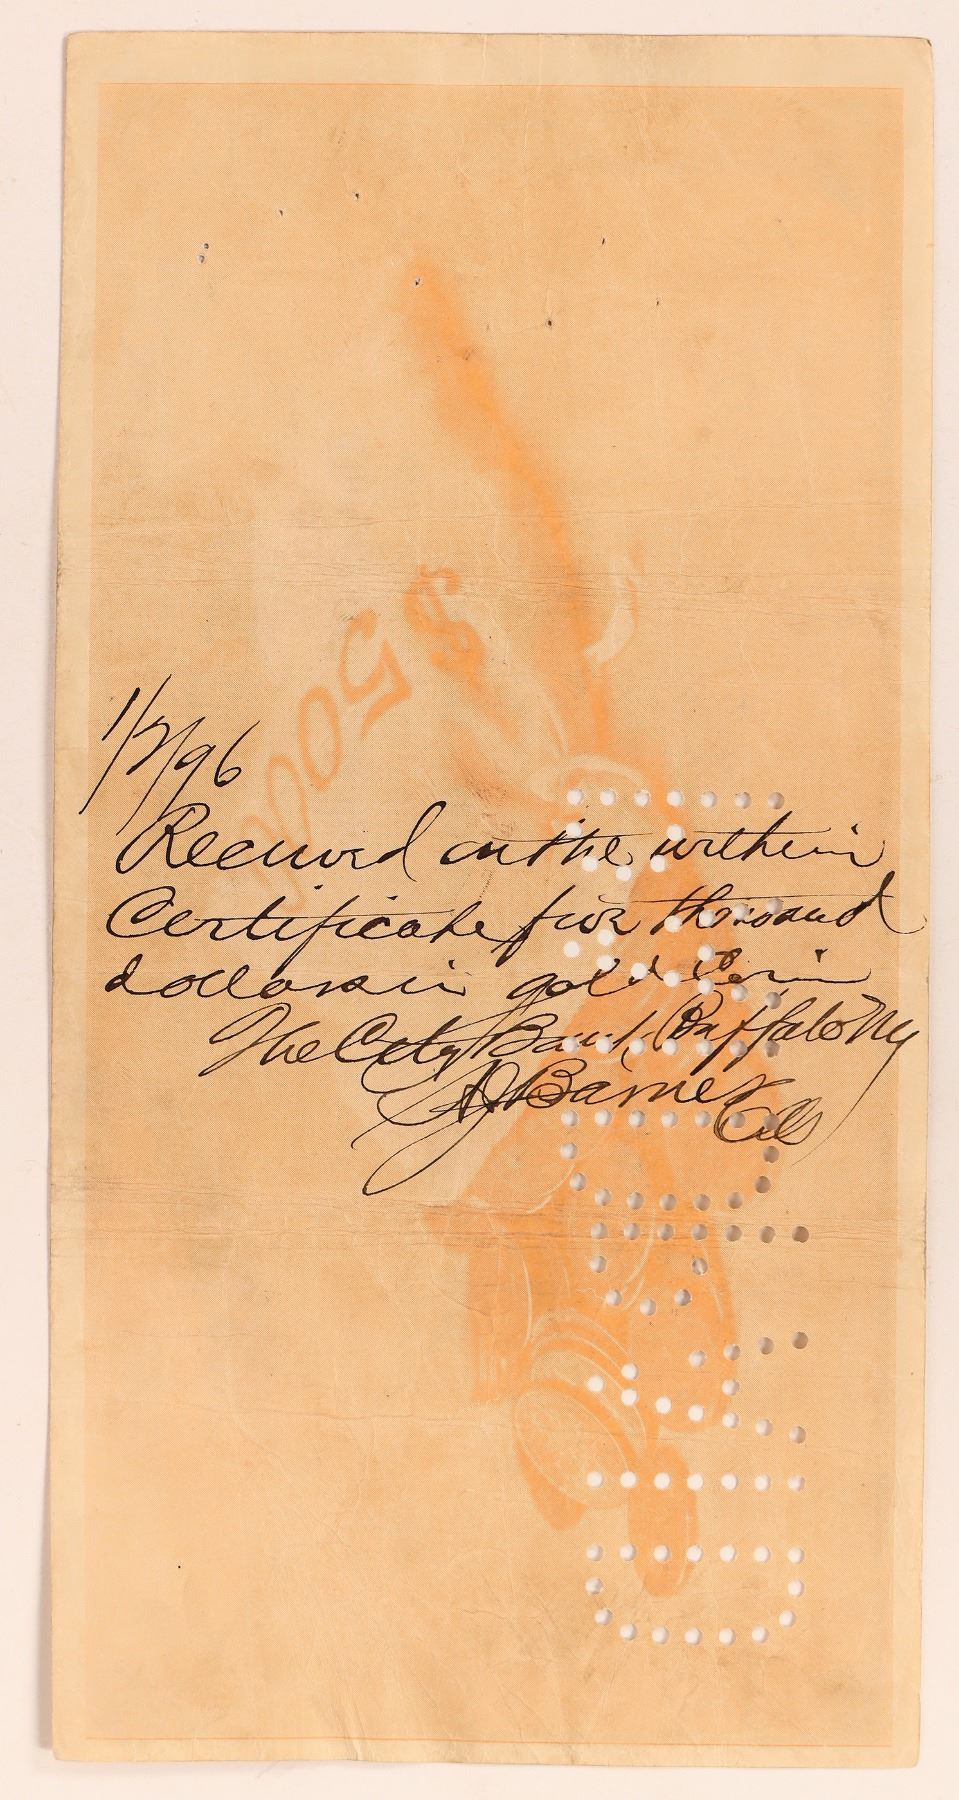 Received on the within
Certificate five thousand
dollars in gold Coin
The City Bank, Buffalo NY
Barnes
Cas
$5000